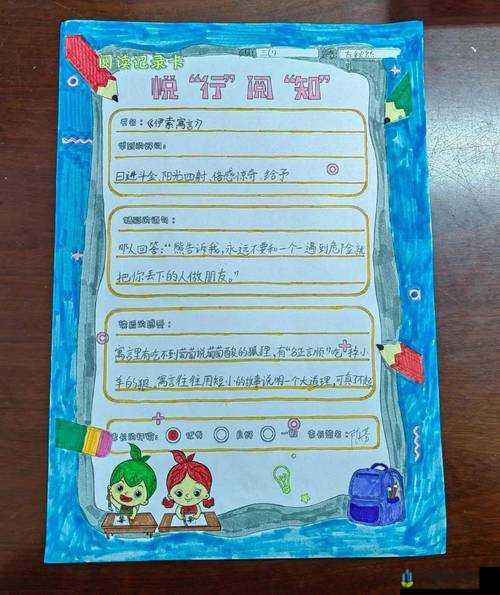 阅读记录卡
悦“行”阅“知”
书名：《伊索寓言》
日进斗金、阳光四射、倍感惊奇、给予
那人回答：“熊告诉我，永远不要和一个一遇到危险就
把你丢下的人做朋友。”
读后的感受：
寓言里有吃不到葡萄说葡萄酸的狐狸，有“名正言顺”吃掉小
羊的狼，寓言往往用短小的故事说明一个大道理，可真不起
家长的评价： 优秀 良好 一般 家长签名：